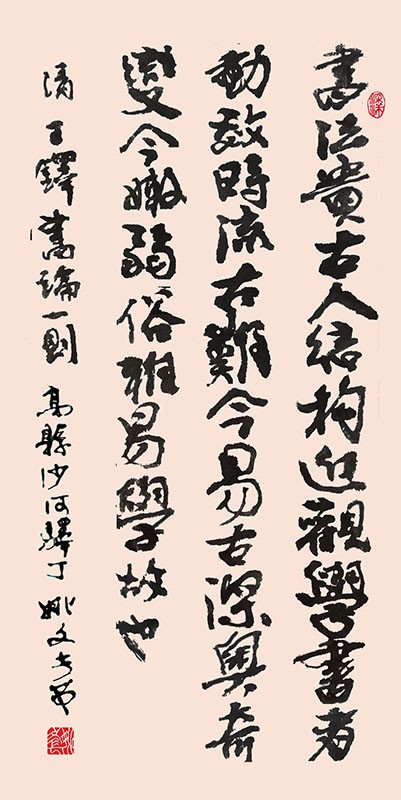 書法貴古人結構近觀學書者
動效時流古難今易古深奧奇
變今嫩弱俗雅易學故也
清王鐸論一則 高縣沙河驛丁 姚文